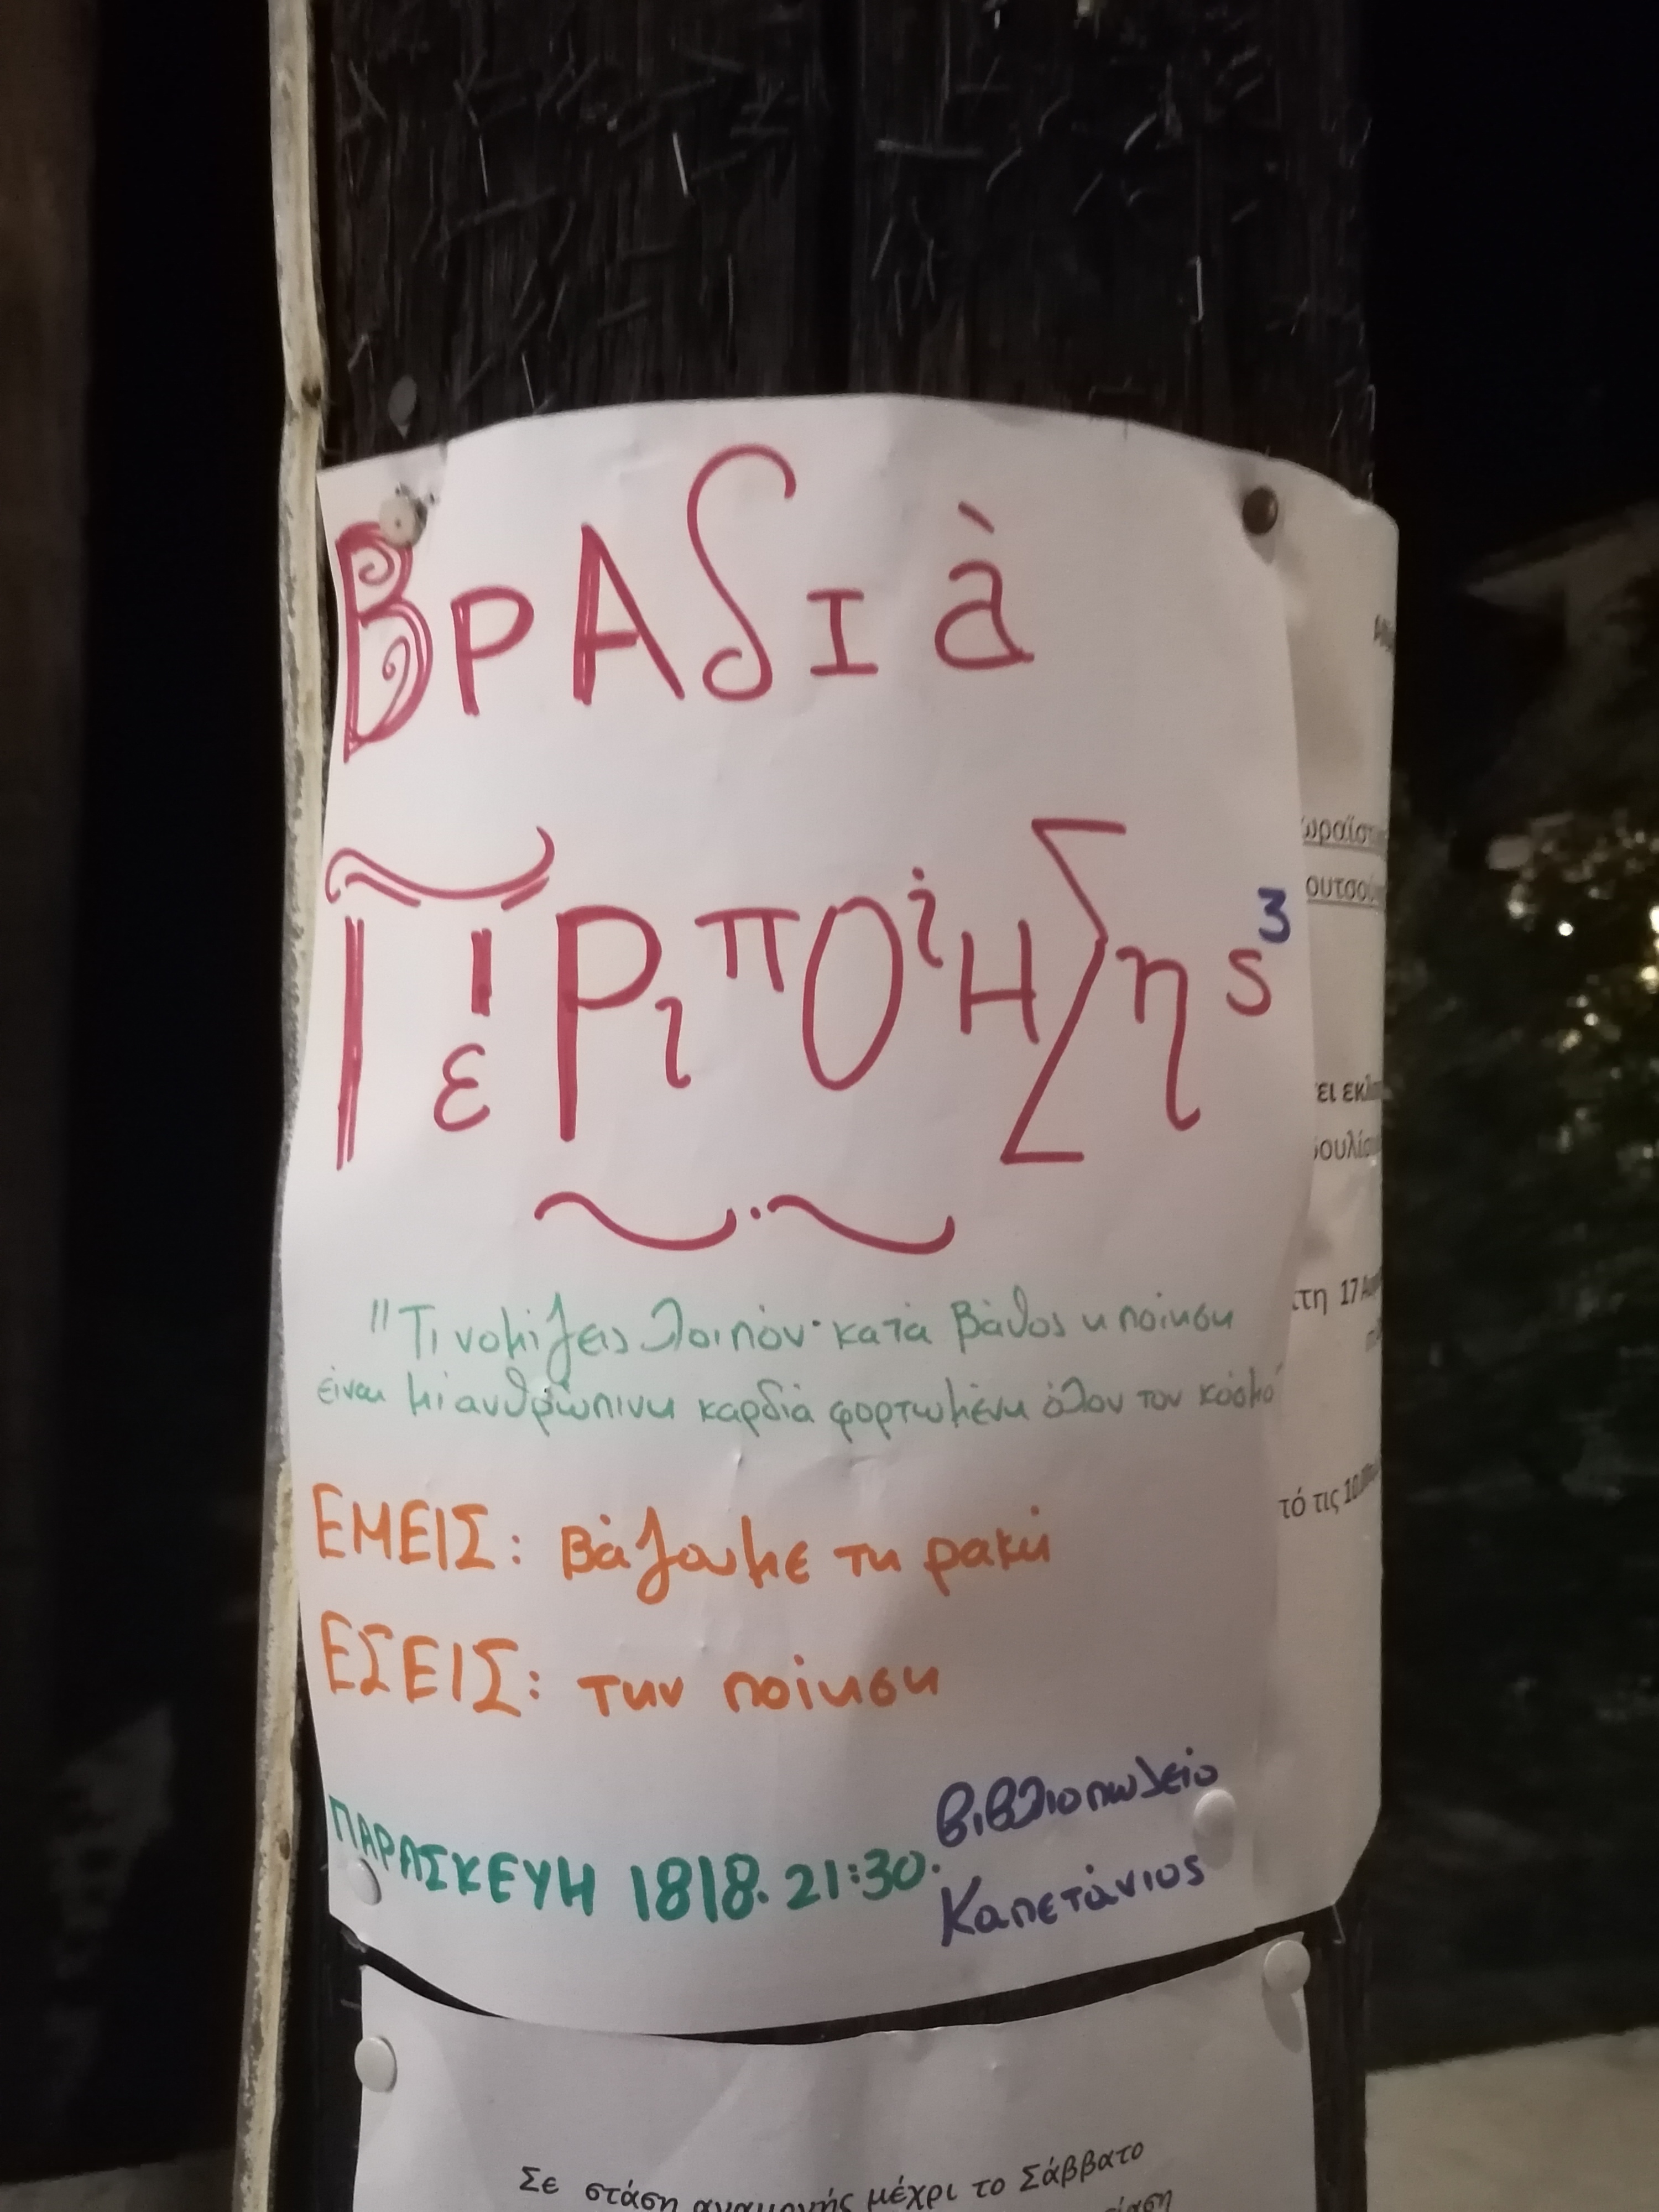 Βραδιά
Περιποίησης³
"Τι νομίζεις λοιπόν· κατά βάθος η ποίηση
είναι μι' ανθρώπινη καρδιά φορτωμένη όλον τον κόσμο"
ΕΜΕΙΣ: βάζουμε τη ρακή
ΕΣΕΙΣ: την ποίηση
ΠΑΡΑΣΚΕΥΗ 18|8. 21:30.
Βιβλιοπωλείο
Καπετάνιος
ει
τη 17
τό τις 10
Σε στάση αναμονής μέχρι το Σάββατο